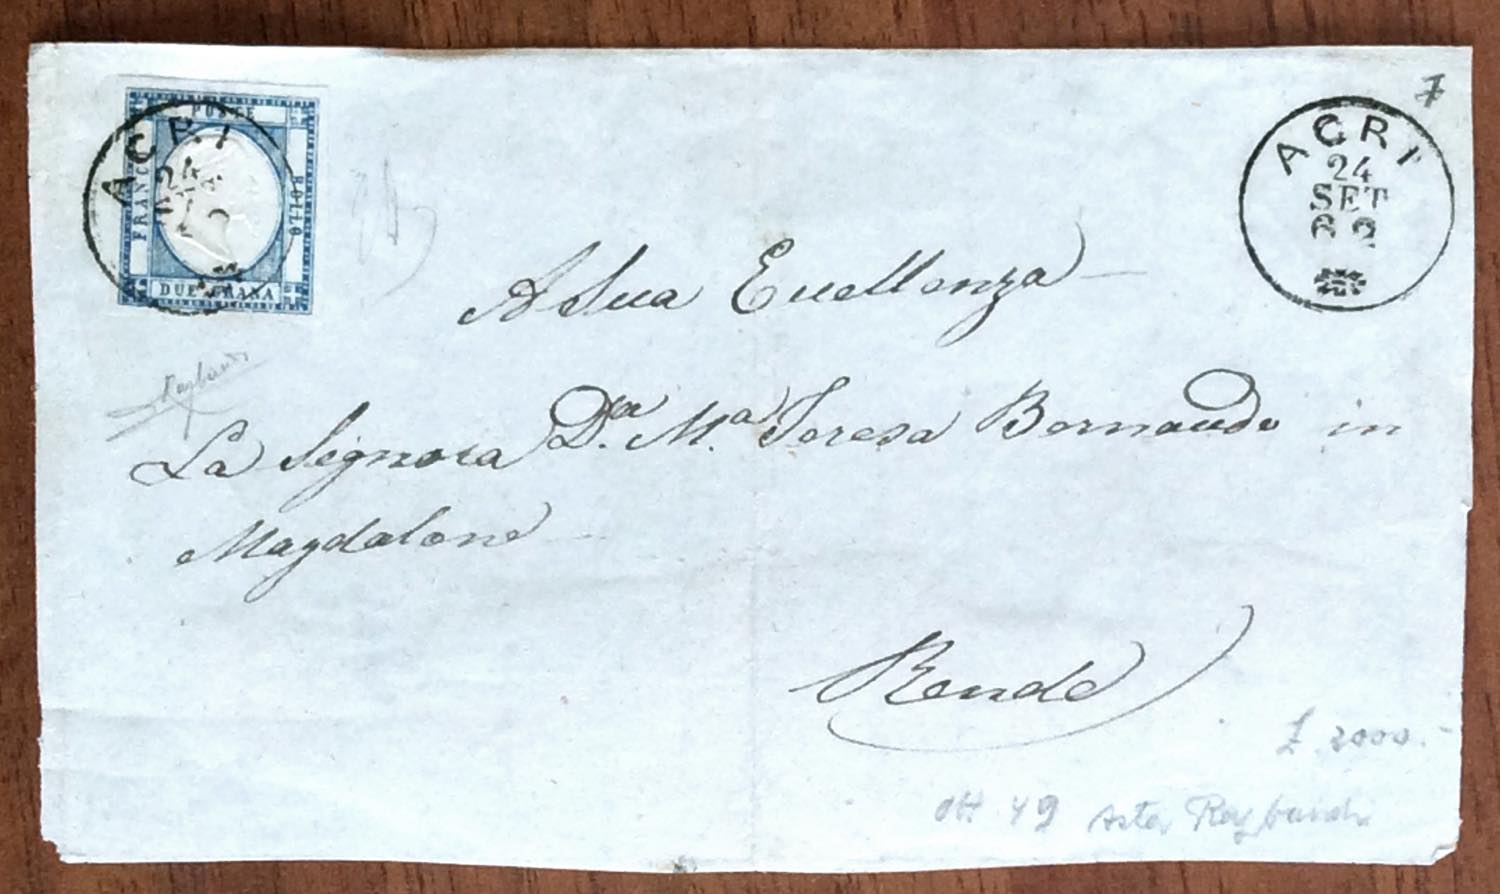 POSTE
FRANCO
BOLLO
DUE GRANA
ACRI
24
ACRI
24
SET
62
A Sua Eccellenza
La Signora D.ª M.ª Teresa Bernaudo in
Magdalone
Rende
£ 2000.-
ott 49 Asta Raybaudi
Raybaudi